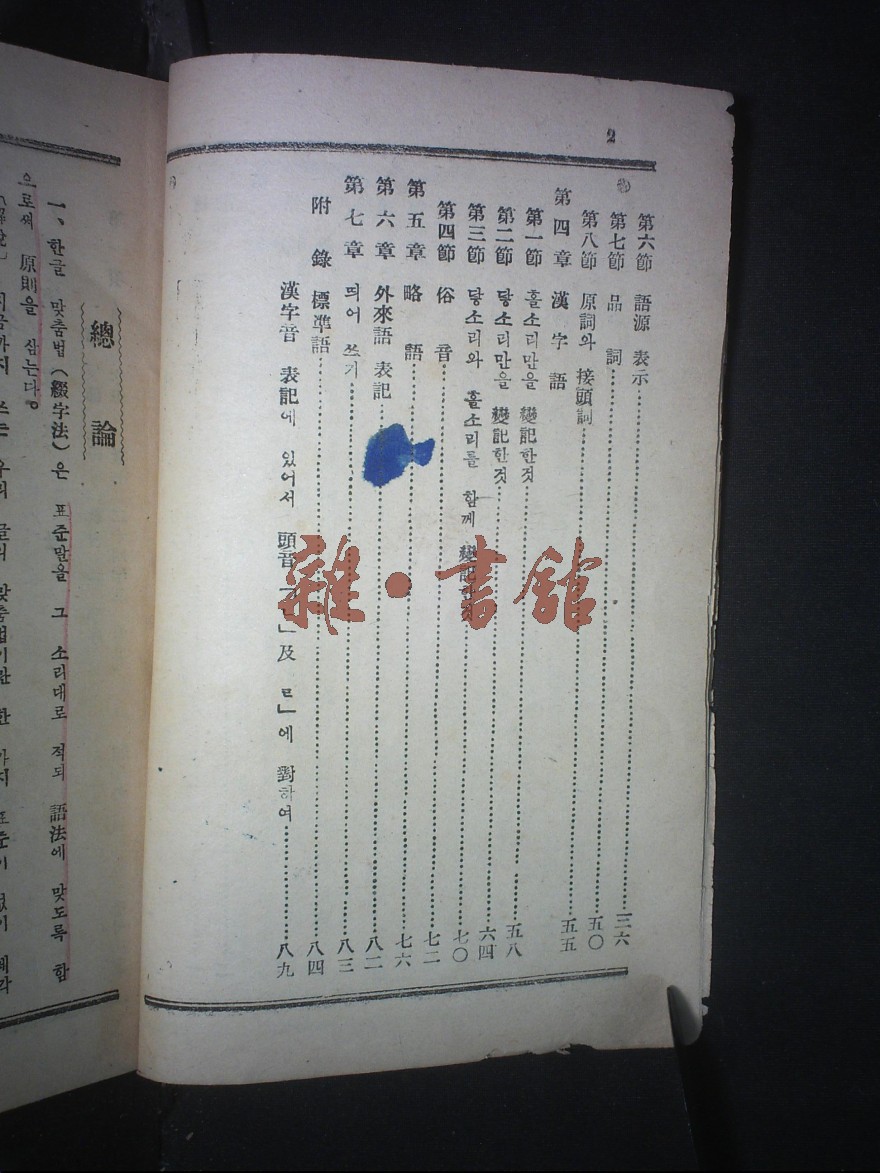 2
第六節 語源 表示 三六
第七節 品 詞 五〇
第八節 原詞와 接頭詞 五五
第四章 漢字語
第一節 홀소리만을 變記한것 五八
第二節 닿소리만을 變記한것 六四
第三節 닿소리와 홀소리를 함께 變記한것 七〇
第四節 俗 音 七二
第五章 略 語 七六
第六章 外來語 表記 八二
第七章 띄어 쓰기 八三
附 錄 標準語 八四
漢字音 表記에 있어서 頭音「ㄴ」及 ㄹ」에 對하여 八九
總 論
一、한글 맞춤법(綴字法)은 표준말을 그 소리대로 적되 語法에 맞도록 함
으로써 原則을 삼는다。
雜·書館